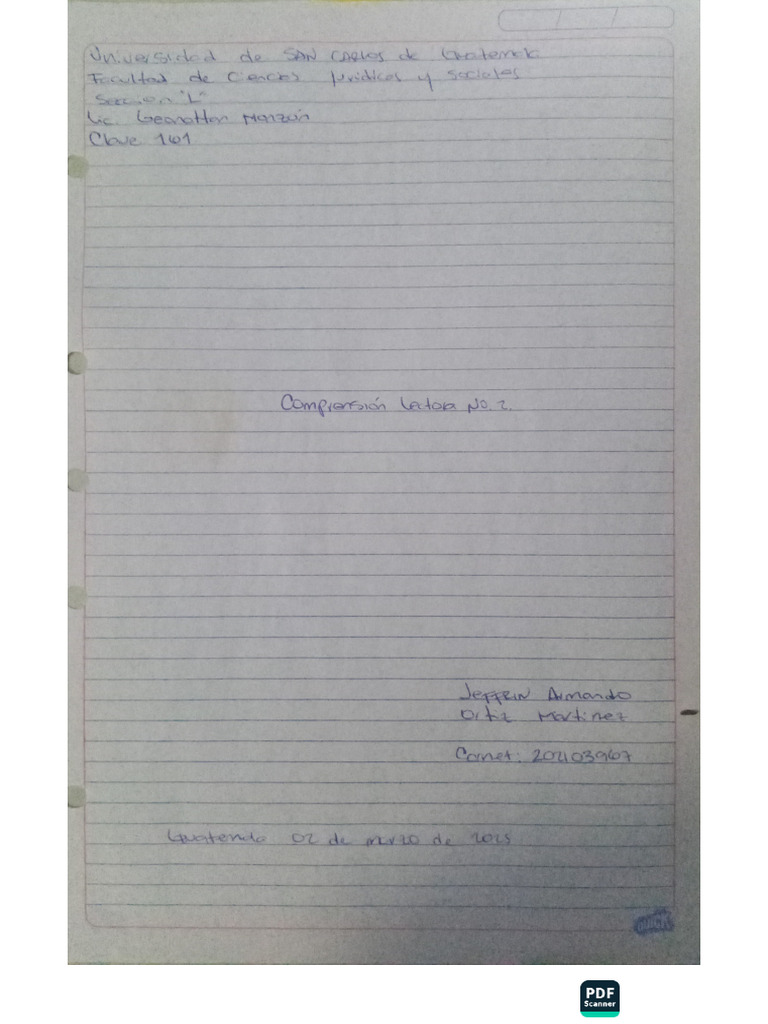 Universidad de SAN CARLOS de Guatemala
Facultad de Ciencias Juridicas y Sociales
Sección "L"
Lic. Geonatton Monzón
Clave 161
Comprensión Lectora No. 2.
Jeffrin Armando
Ortiz Martinez
Carnet: 202103967
Guatemala 02 de marzo de 2025
QUICK
PDF
Scanner